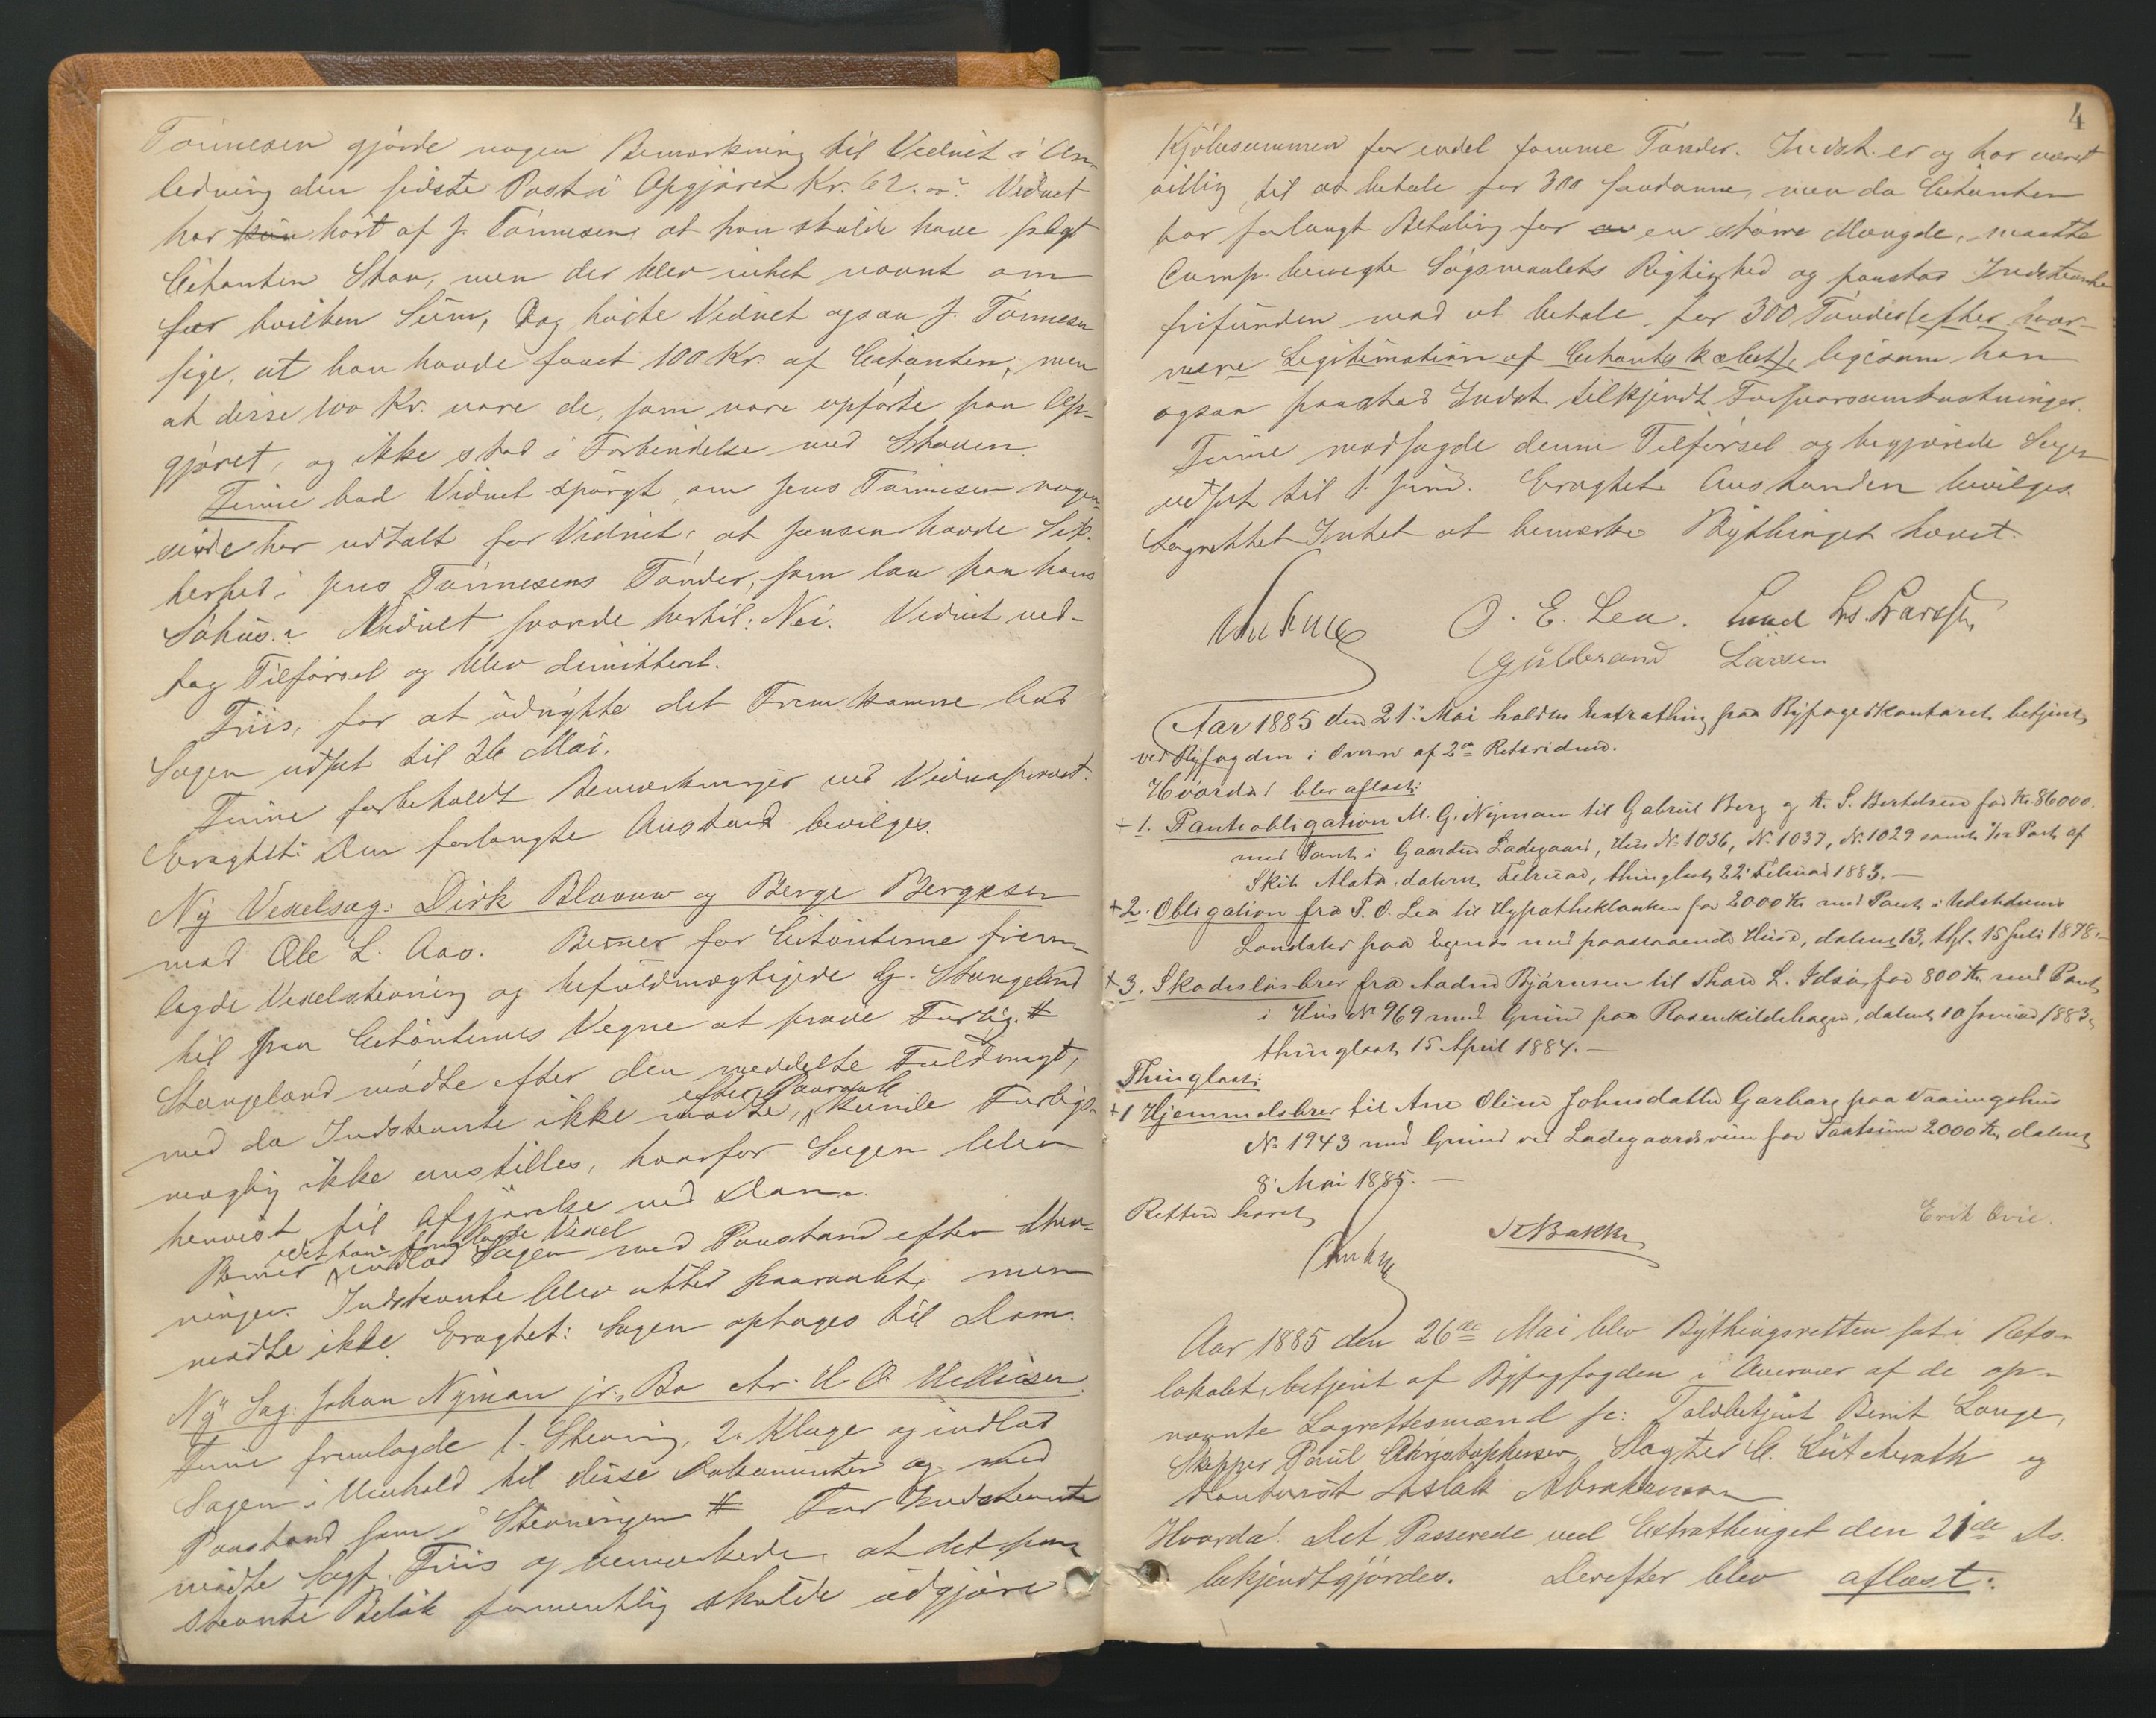 Tönnesen gjörde nogen Bemærkning til Vidnet i An-
ledning den sidste Post i Opgjöret Kr. 62. Vidnet
har hört af J. Tönnesen, at han skulde have solgt
Citanten Stav, men der blev intet nævnt om
for hvilken Süm, Dog hörte Vidnet ogsaa J. Tönnesen
sige, at han havde faaet 100 Kr. af Citanten, men
at disse 100 Kr. vare de, som vare opförte paa Op-
gjöret, og ikke stod i Forbindelse med Staven.
bad Vidnet spürgt, om Jens Tönnesen nogen-
sinde har udtalt for Vidnet, at Jansen havde Sik-
kerhed i Jens Tönnesens Tönder, som laa paa hans
Söhüs? Vidnet svarede hertil: Nei. Vidnet ved-
tog Tilförsel og blev dimitteret.
Friis, for at üdnytte det Fremkomne bad
Sagen udsat til 26 Mai.
forbeholdt Bemærkninger ved Vidneförselet.
Eragtet: Den forlangte Anstand bevilges.
Ny Vexelsag: Dirk Blaauw og Berge Bergesen
mod Ole L. Aao. Berner for Citanterne frem-
lagde Vexelstevning og befuldmægtigede G. Stangeland
til paa Citanternes Vegne at pröve Forlig. #
Stangeland mödte efter den meddelte Fuldmagt,
men da Indstevnte ikke mödte, efter Paaraab kunde Forligs-
mægling ikke anstilles, hvorfor Sagen blev
henvist til Afgjörelse ved Dom.
Berner, idet han fremlagde Vexel indlod Sagen med Paastand efter Stev-
ningen. Indstevnte blev atter paaraabt, men
mödte ikke. Eragtet: Sagen optages til Dom.
Ny Sag: Johan Nyman jr. Bo ctr. H. O. Helliesen
fremlagde 1. Stevning, 2. Klage og indlod
Sagen i Henhold til disse Dokumenter og med
Paastand som i Stevningen # For Indstevnte
mödte Sagf. Friis og bemærkede, at det paa-
stevnte Belöb formentlig skulde üdgjöre
4
Kjöbesummen for endel tomme Tönder. Indst. er og har været
villig til at betale for 300 saadanne, men da Citanten
har forlangt Betaling for en större Mængde, maatte
Comp. benegte Sögsmaalets Rigtighed og paastod Indstevnte
frifünden mod at betale for 300 Tönder (efter nær-
mere Legitimation af Citants kaldet), ligesom han
ogsaa paastod Indst. tilkjendt Forsvarsomkostninger.
modsagde denne Tilförsel og begjærede Sagen
udsat til 1. Jüni. Eragtet: Anstanden bevilges.
Lagrettet Intet at bemærke Bythinget hævet.
O. E. Lea. Lars Larssen
Guldbrand Larsen
Aar 1885 den 21' Mai holdtes Extrathing paa Byfogedkontoret, betjent
ved Byfogden i Overvær af 2de Retsvidner.
Hvorda! blev aflæst:
+ 1. Panteobligation M. G. Nyman til Gabriel Berg og K. S. Bertelsen for Kr. 86000.
med Pant i Gaarden Ladegaard, Hus No 1036, No 1037, No 1029 samt Part af
Skib Alata, dateret Februar, thinglæst 22' Februar 1883. —
+ 2. Obligation fra P. O. Lea til Hypothekbanken for 2000 Kr. med Pant i
Egenæs med paastaaende Huse, dateret 13, thgl. 15 Juli 1878. —
+ 3. Skadeslösbrev fra Aadne Björnsen til Thore L. Idsöe for 800 Kr. med Pant
i Hüs No 969 med Grund paa Rosenkildehagen, dateret 10 Januar 1883,
thinglæst 15 April 1884. —
Thinglæst:
+ 1 Hjemmelsbrev til Ane Oline Johnsdatter Garborg paa Vaaningshus
No 1943 med Grund ved Ladegaardsveien for 2000 Kr., dateret
8' Mai 1885. —
Retten hævet
Bakke
Erik Evie.
Aar 1885 den 26de Mai blev Bythingsretten sat i Rets-
lokalet, betjent af Byfogfogden i Overvær af de op-
nævnte Lagrettesmænd se: Toldbetjent Bernt Lange,
Skipper Paül Christophersen, Slagter C. Lütcherath og
Aslak Abrahamsen
Hvorda! Det Passerede ved Extrathinget den 21de ds.
bekjendtgjördes. Derefter blev aflæst: